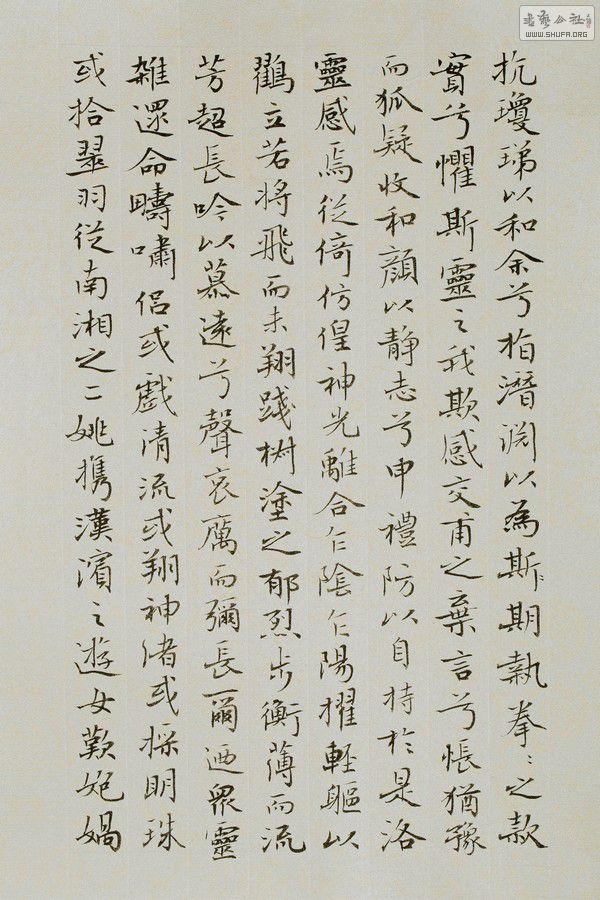 抗瓊珶以和余兮指潛淵以為斯期執拳〻之款
實兮懼斯靈之我欺感交甫之棄言兮悵猶豫
而狐疑收和顏以靜志兮申禮防以自持於是洛
靈感焉從倚仿偟神光離合乍陰乍陽擢輕軀以
鸛立若將飛而未翔踐椒塗之郁烈步衡薄而流
芳超長吟以慕遠兮聲哀厲而彌長爾迺眾靈
雜遝命疇嘯侶或戲清流或翔神渚或採明珠
或拾翠羽從南湘之二姚攜漢濱之遊女歎匏媧
書藝公社
WWW.SHUFA.ORG